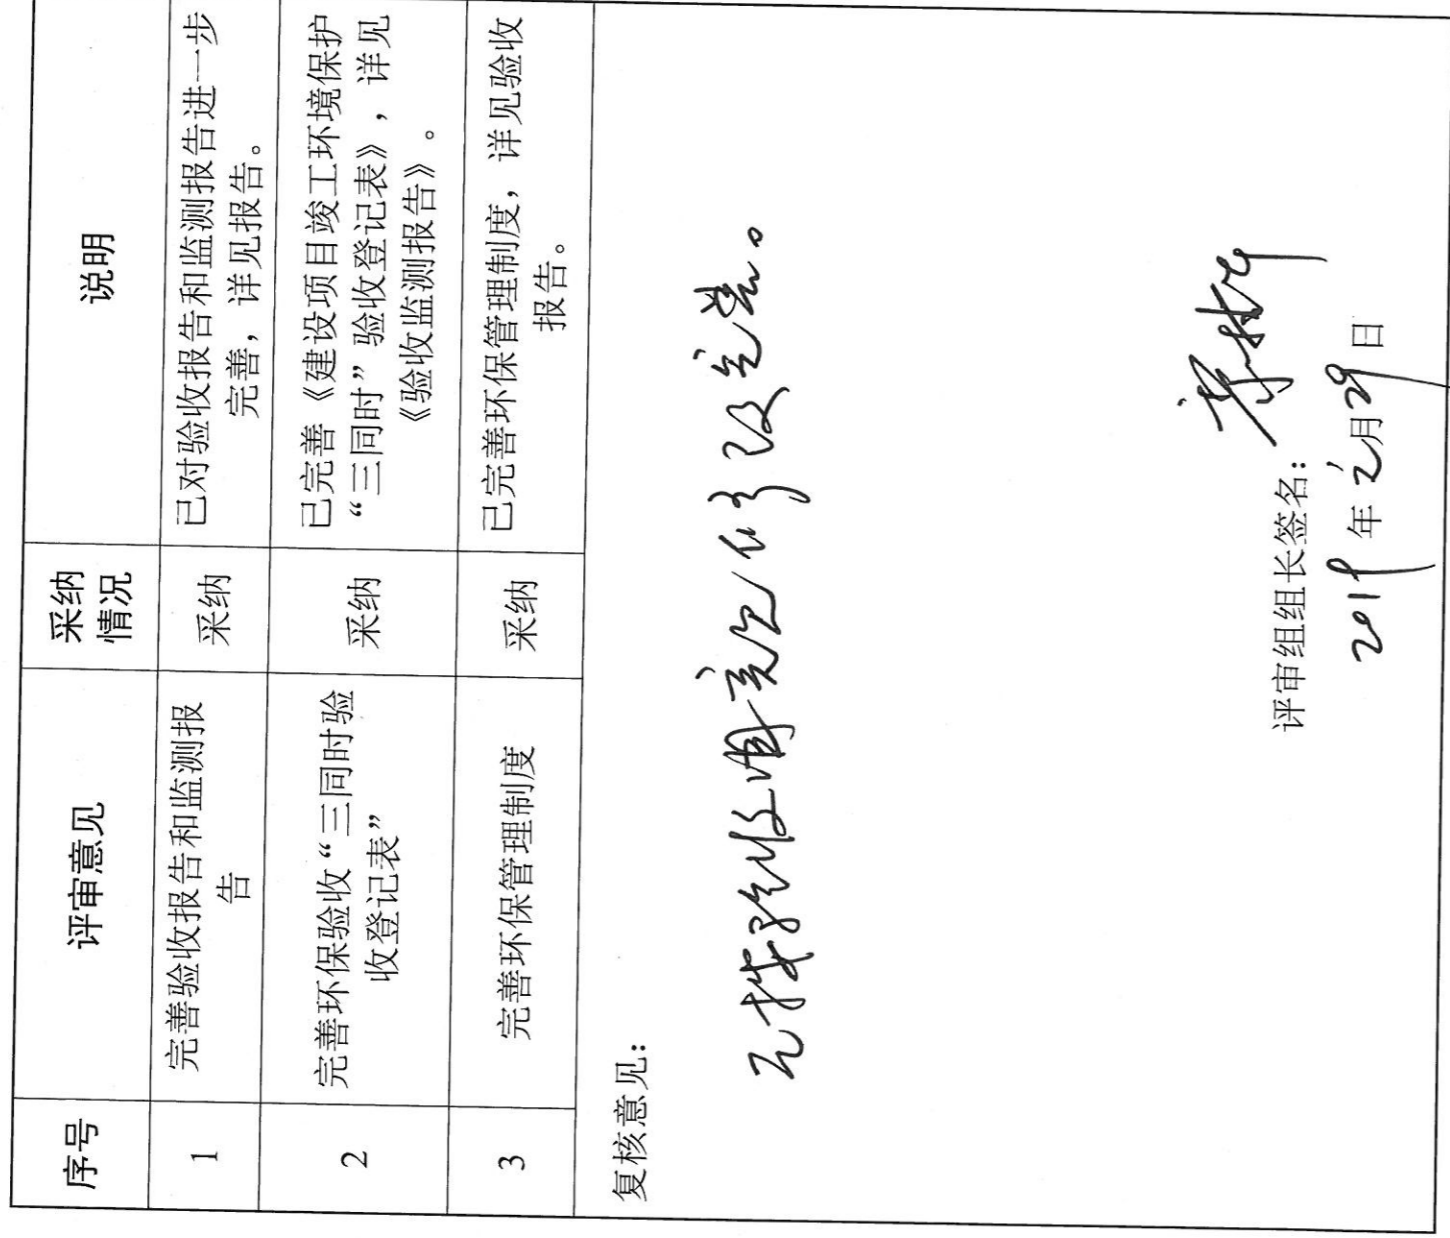 序号 评审意见 采纳情况 说明
1 完善验收报告和监测报告 采纳 已对验收报告和监测报告进一步完善，详见报告。
2 完善环保验收“三同时验收登记表” 采纳 已完善《建设项目竣工环境保护“三同时”验收登记表》，详见《验收监测报告》。
3 完善环保管理制度 采纳 已完善环保管理制度，详见验收报告。
复核意见：
已按验收组意见修改完善。
评审组组长签名：
2019年12月29日